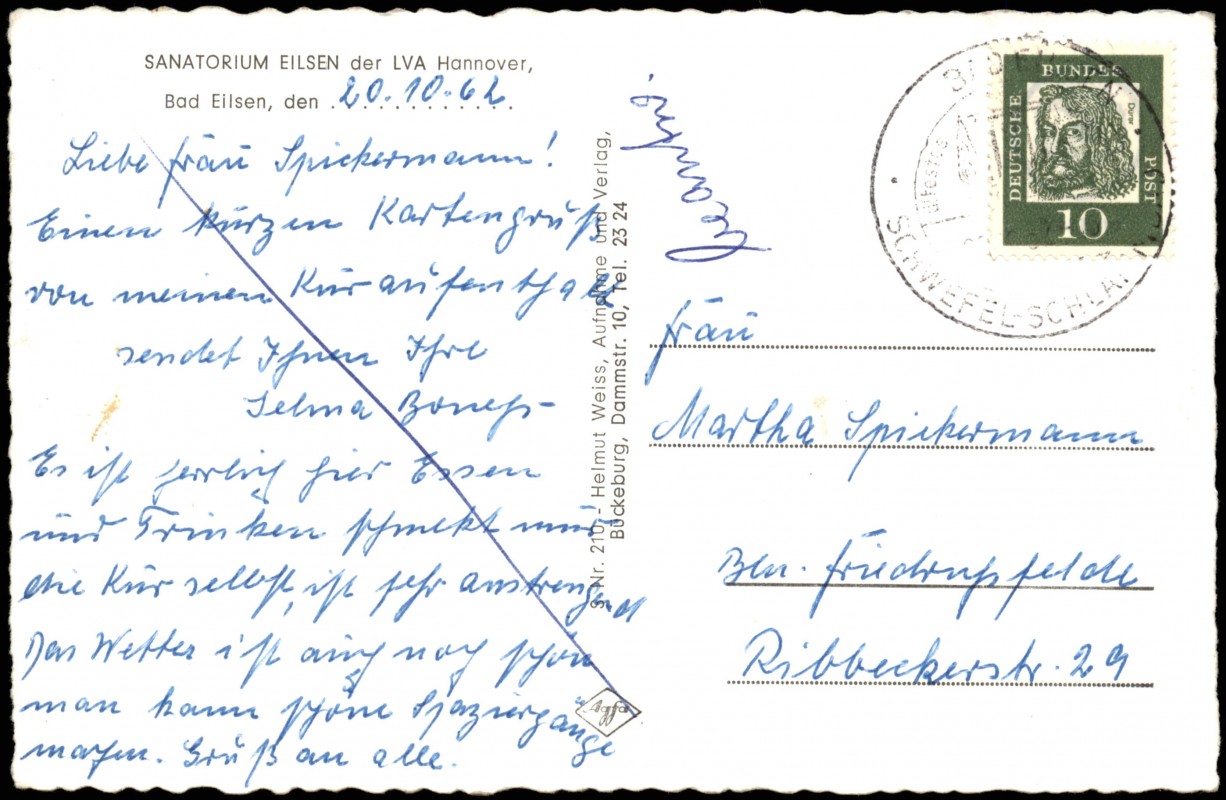 SANATORIUM EILSEN der LVA Hannover,
Bad Eilsen, den 20.10.62
Liebe Frau Spickermann!
Einen kurzen Kartengruß
von meinen Kuraufenthalt
sendet Ihnen Ihre
Selma
Es ist herrlich hier Essen
und Trinken schmekt nur
die Kur selbst, ist sehr anstrengend
Das Wetter ist auch noch schön
man kann schöne Spaziergänge
machen. Gruß an alle.
S Nr. 210 - Helmut Weiss, Aufnahme und Verlag,
Bückeburg, Dammstr. 10, Tel. 23 24
Agfa
BAD EILSEN
SCHWEFEL-SCHLAMM
DEUTSCHE BUNDESPOST
Dürer
10
Frau
Martha Spickermann
Bln. Friedrichsfelde
Ribbeckerstr. 29